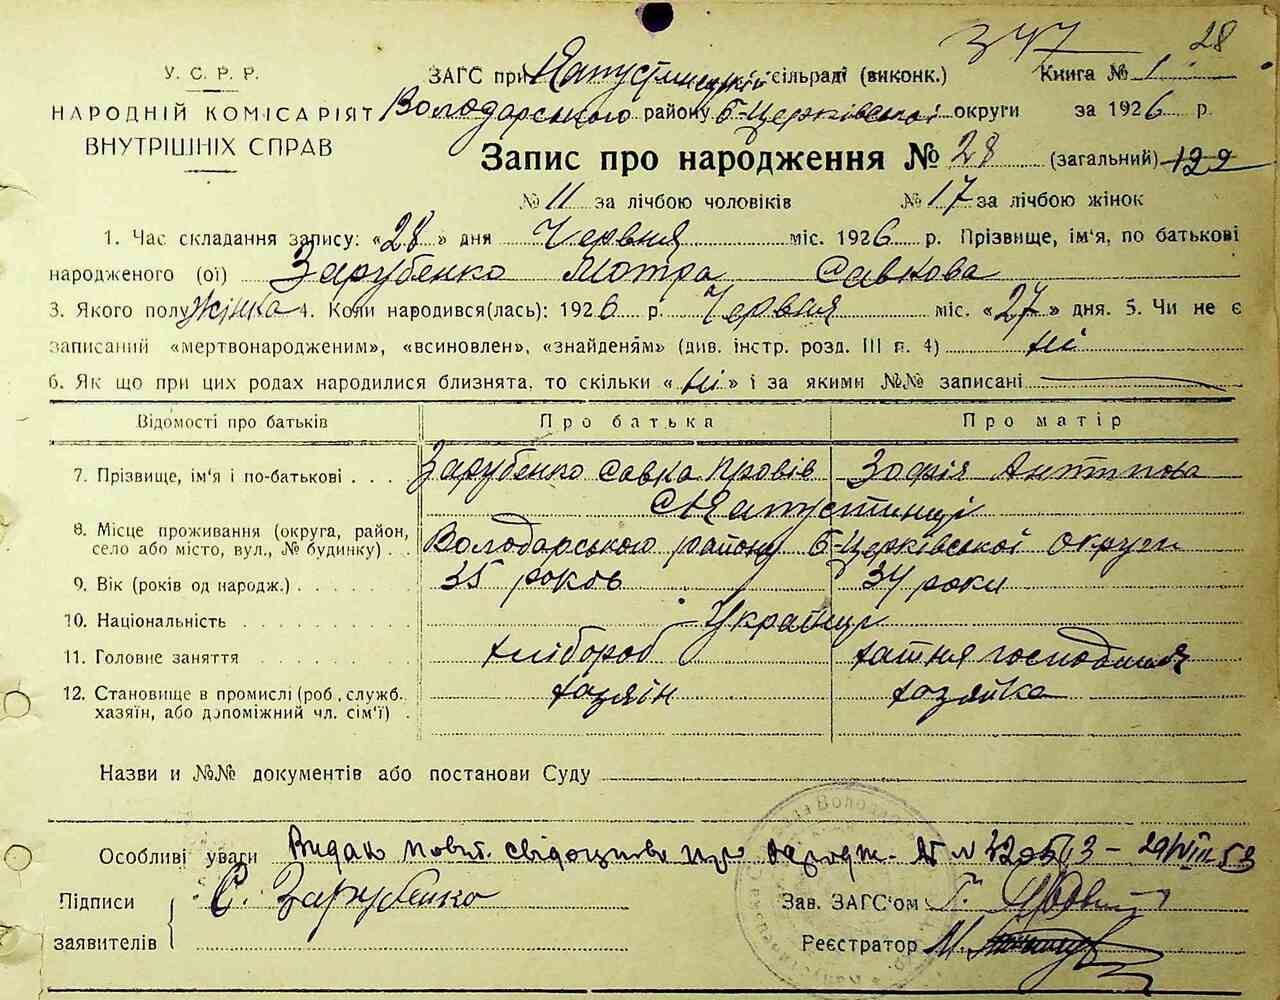 347 28
У. С. Р. Р. ЗАГС при Капустинській сільраді (виконк.) Книга № 1
НАРОДНІЙ КОМІСАРІЯТ Володарського району Б-Церківської округи за 1926 р.
ВНУТРІШНІХ СПРАВ
Запис про народження № 28 (загальний) 122
№ 11 за лічбою чоловіків № 17 за лічбою жінок
1. Час складання запису: «28» дня Червня міс. 1926 р. Прізвище, ім'я, по батькові
народженого (ої) Зарубенко Мотра Савкова
3. Якого полу Жінка 4. Коли народився(лась): 1926 р. Червня міс. «27» дня. 5. Чи не є
записаний «мертвонародженим», «всиновлен», «знайденям» (див. інстр. розд. III п. 4) ні
6. Як що при цих родах народилися близнята, то скільки «ні» і за якими №№ записані
Відомості про батьків Про батька Про матір
7. Прізвище, ім'я і по-батькові . . . Зарубенко Савка Провів Зофія Антипова
с Капустинці
8. Місце проживання (округа, район,
село або місто, вул., № будинку) . . Володарського району Б-Церківської округи
9. Вік (років од народж.) . . . . . . 35 роков 34 роки
10. Національність . . . . . . . . . Українці
11. Головне заняття . . . . . . . . хлібороб хатня господиня
12. Становище в промислі (роб., служб. хазяїн хазяйка
хазяїн, або допоміжний чл. сім'ї) .
Назви и №№ документів або постанови Суду
Особливі уваги Видано повт. свідоцтво про народж.
Підписи С. Зарубенко Зав. ЗАГС'ом Г.
заявителів Реєстратор М.